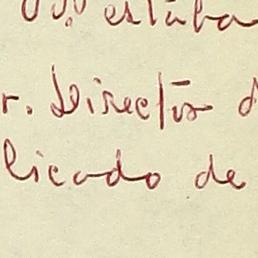 VV. estaba
r. Director d
licado de